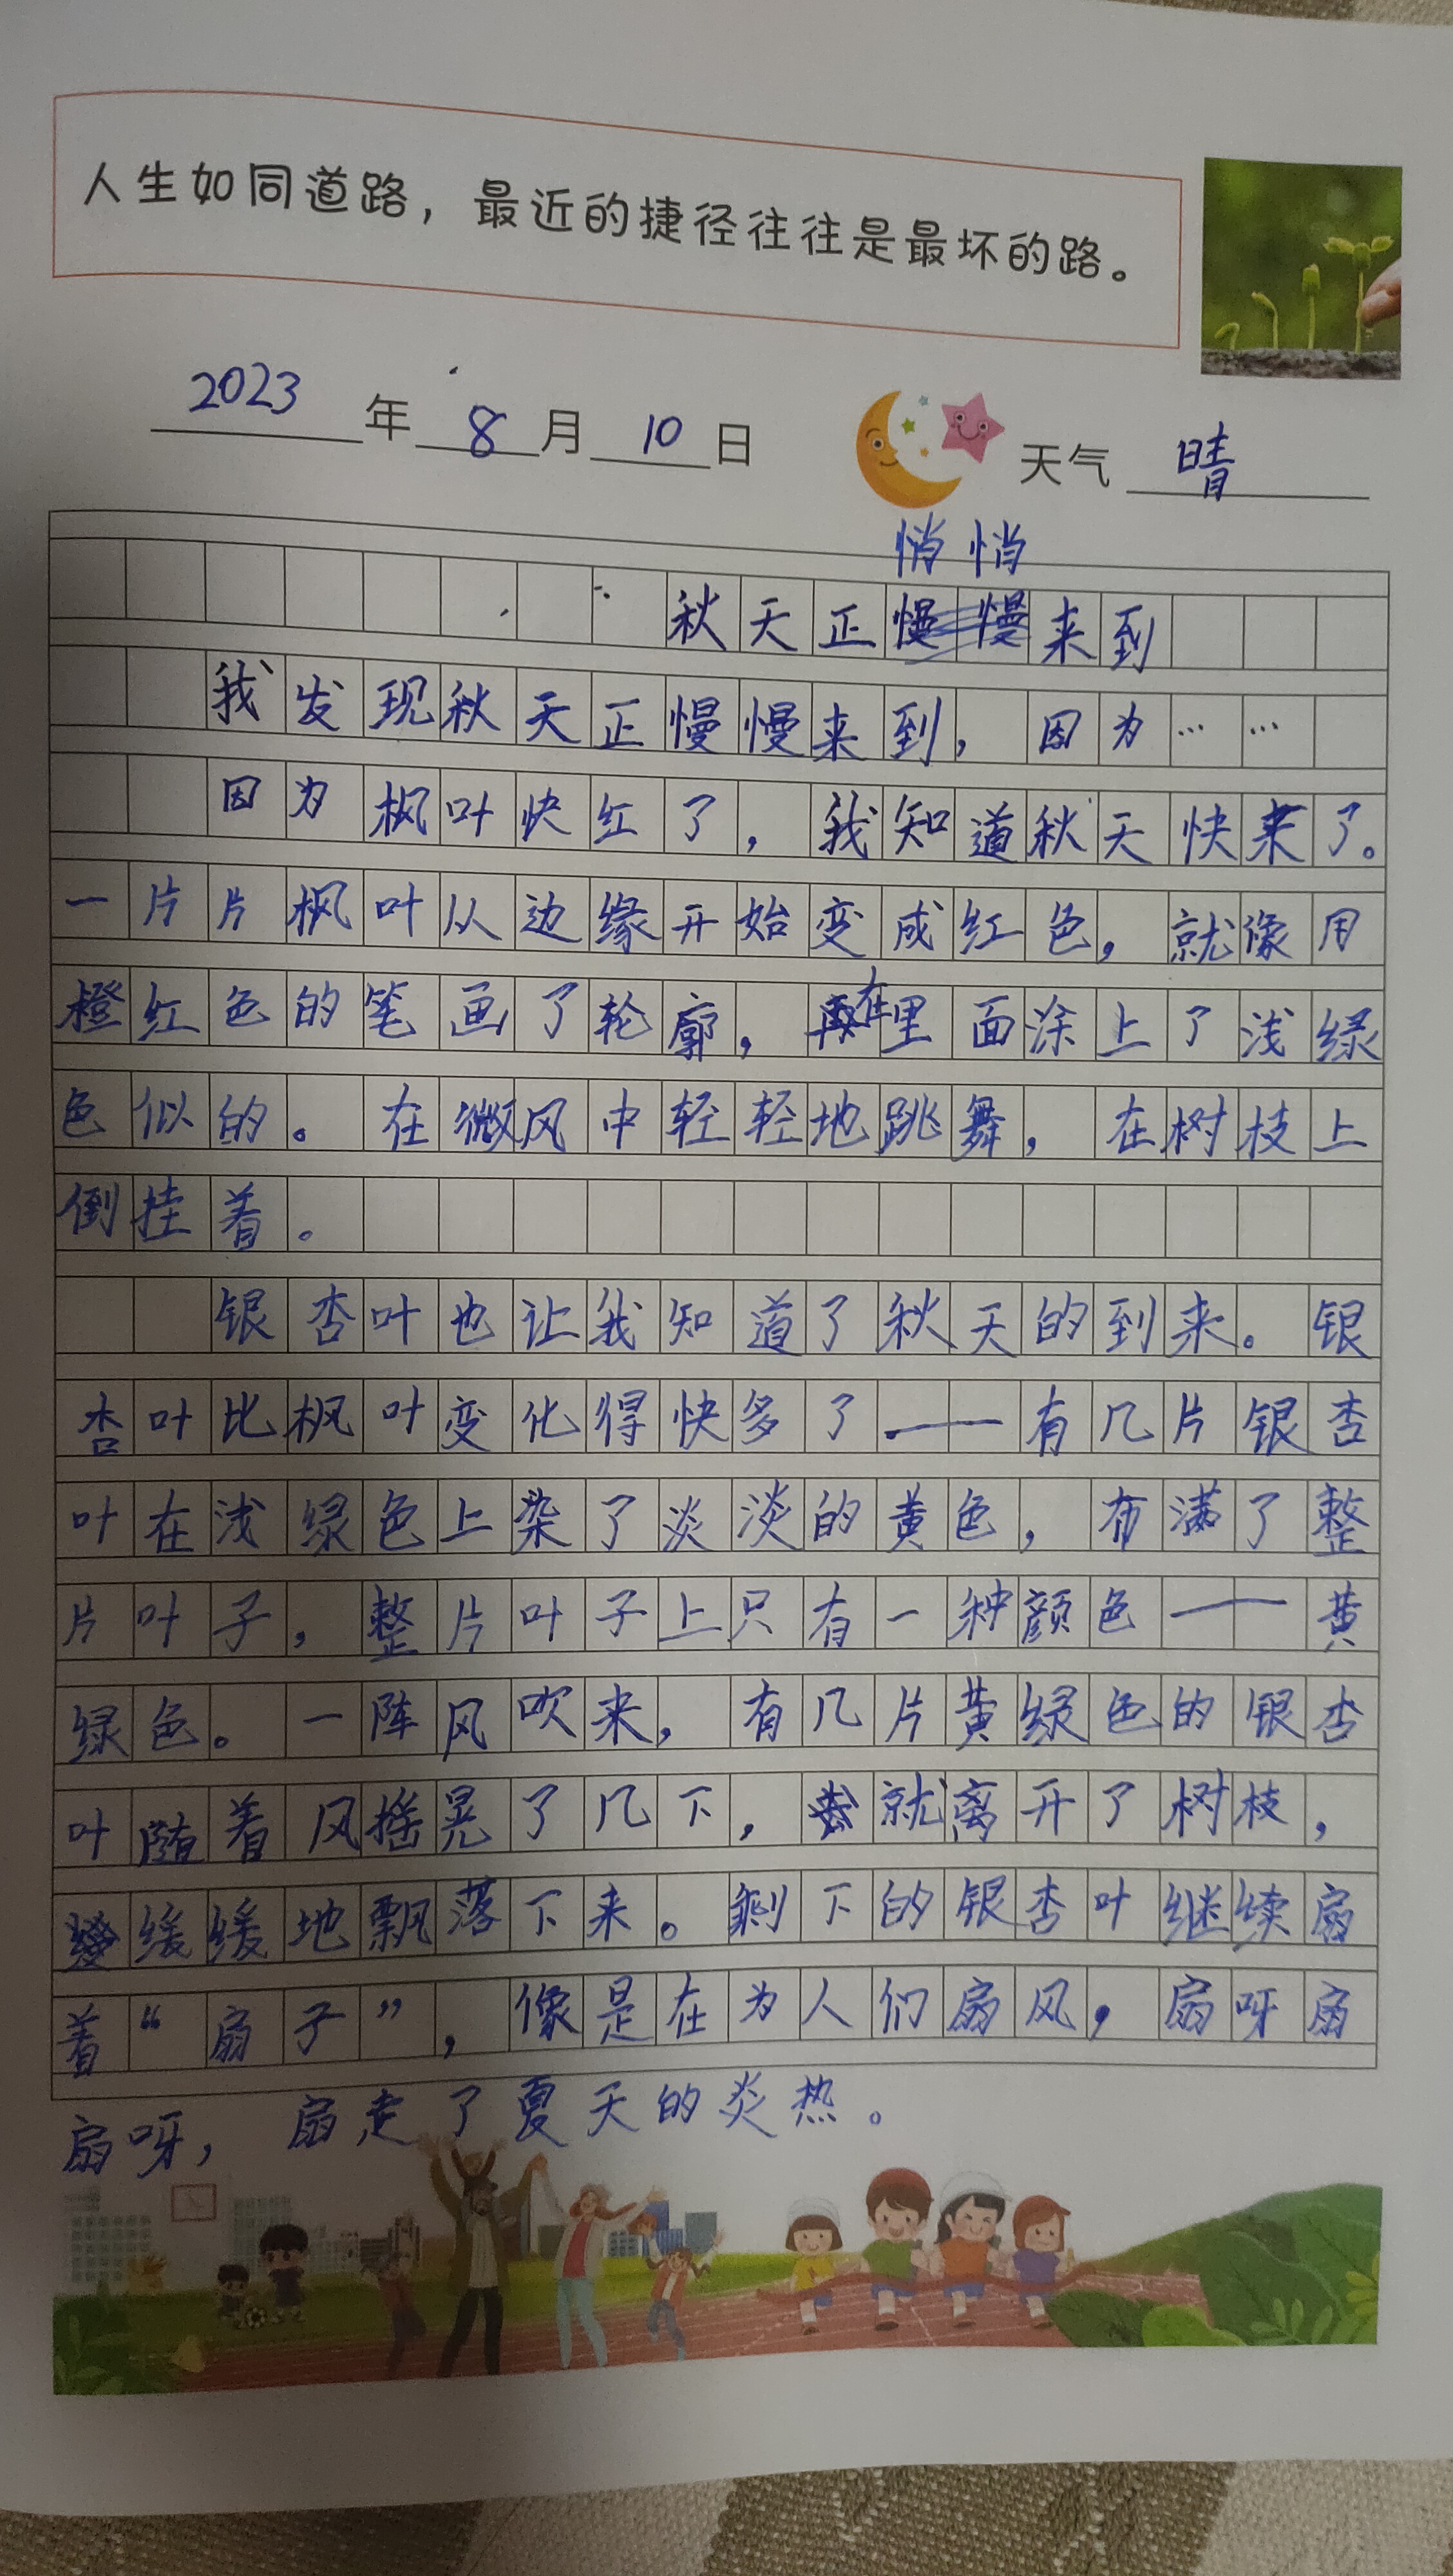 人生如同道路，最近的捷径往往是最坏的路。
2023年8月10日 天气 晴
悄悄
秋天正慢慢来到
我发现秋天正慢慢来到，因为……
因为枫叶快红了，我知道秋天快来了。
一片片枫叶从边缘开始变成红色，就像用
橙红色的笔画了轮廓，再在里面涂上了浅绿
色似的。在微风中轻轻地跳舞，在树枝上
倒挂着。
银杏叶也让我知道了秋天的到来。银
杏叶比枫叶变化得快多了——有几片银杏
叶在浅绿色上染了淡淡的黄色，布满了整
片叶子，整片叶子上只有一种颜色——黄
绿色。一阵风吹来，有几片黄绿色的银杏
叶随着风摇晃了几下，就离开了树枝，
缓缓地飘落下来。剩下的银杏叶继续扇
着“扇子”，像是在为人们扇风，扇呀扇
扇呀，扇走了夏天的炎热。